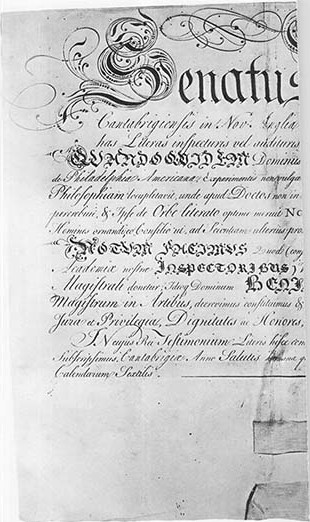 Senatus
Cantabrigiensis in Nov. Anglia
has Literas inspecturis vel audituris
QUANDOQUIDEM Dominus
de Philadelphia Americana, Experimentis non vulga
Philosophiam locupletavit, unde apud Doctos non in
percrebuit, & Ipse de Orbe literato optime meruit No
Homines ornandi eo Consilio ut, ad Scientiam ulterius pro
NOTUM FACIMUS Quod (con
Academiæ nostræ INSPECTORIBUS)
Magistrali donetur; Ideoq Dominum BENI
Magistrum in Artibus, decrevimus constituimus &
Jura et Privilegia, Dignitates ac Honores,
In Cujus Rei Testimonium Literis hisce com
Subscripsimus, Cantabrigiæ Anno Salutis
Calendarum Sextilis